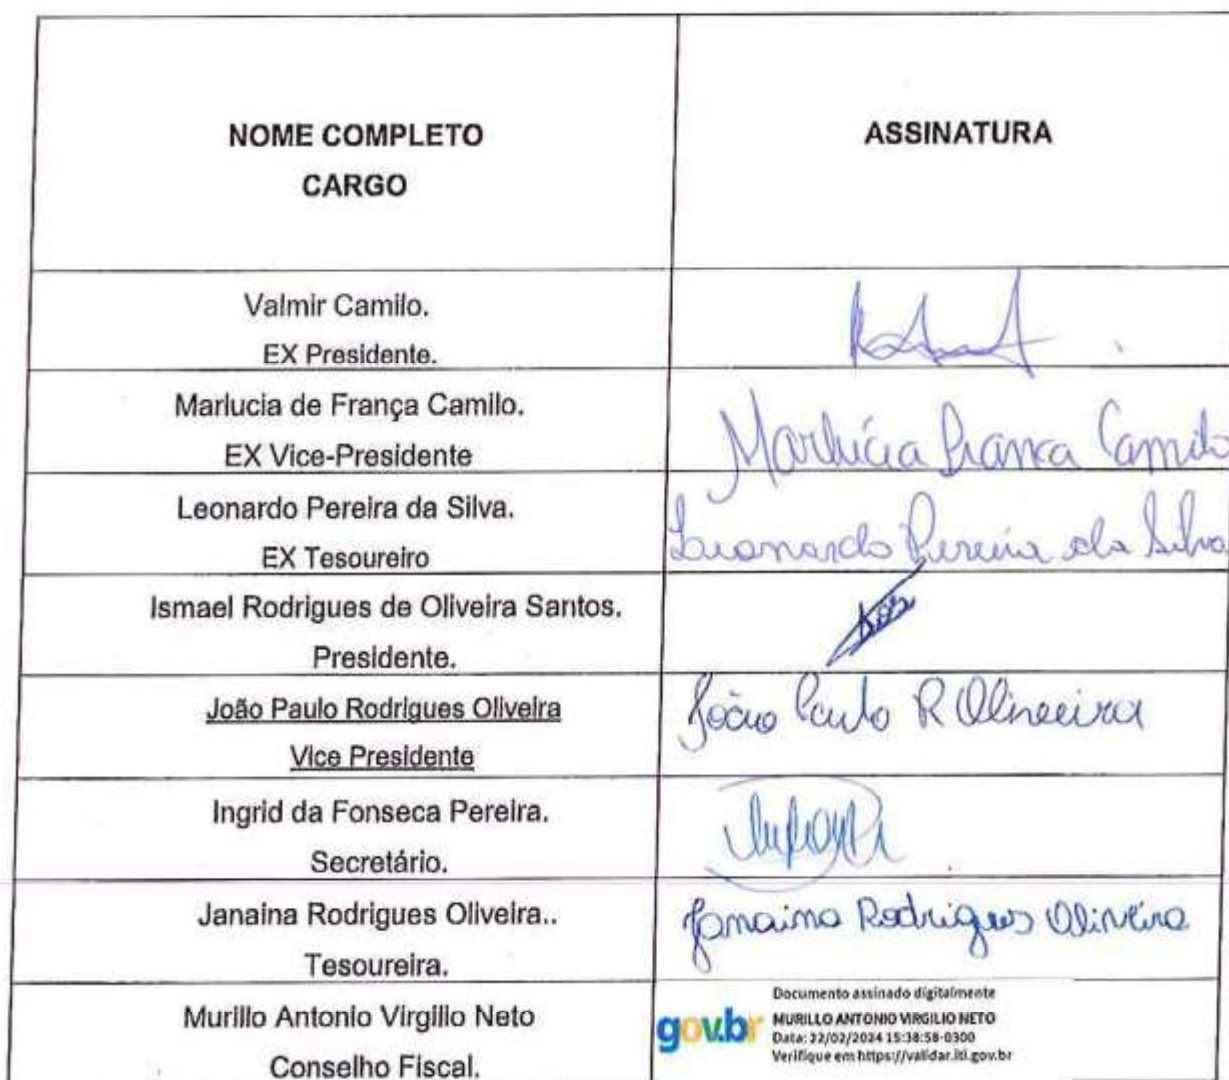 NOME COMPLETO
CARGO
ASSINATURA
Valmir Camilo.
EX Presidente.
Marlucia de França Camilo.
EX Vice-Presidente
Marlúcia França Camilo
Leonardo Pereira da Silva.
EX Tesoureiro
Leonardo Pereira da Silva
Ismael Rodrigues de Oliveira Santos.
Presidente.
João Paulo Rodrigues Oliveira
Vice Presidente
João Paulo R Oliveira
Ingrid da Fonseca Pereira.
Secretário.
Janaina Rodrigues Oliveira..
Tesoureira.
Janaina Rodrigues Oliveira
Murillo Antonio Virgilio Neto
Conselho Fiscal.
gov.br
Documento assinado digitalmente
MURILLO ANTONIO VIRGILIO NETO
Data: 22/02/2024 15:38:58-0300
Verifique em https://validar.iti.gov.br